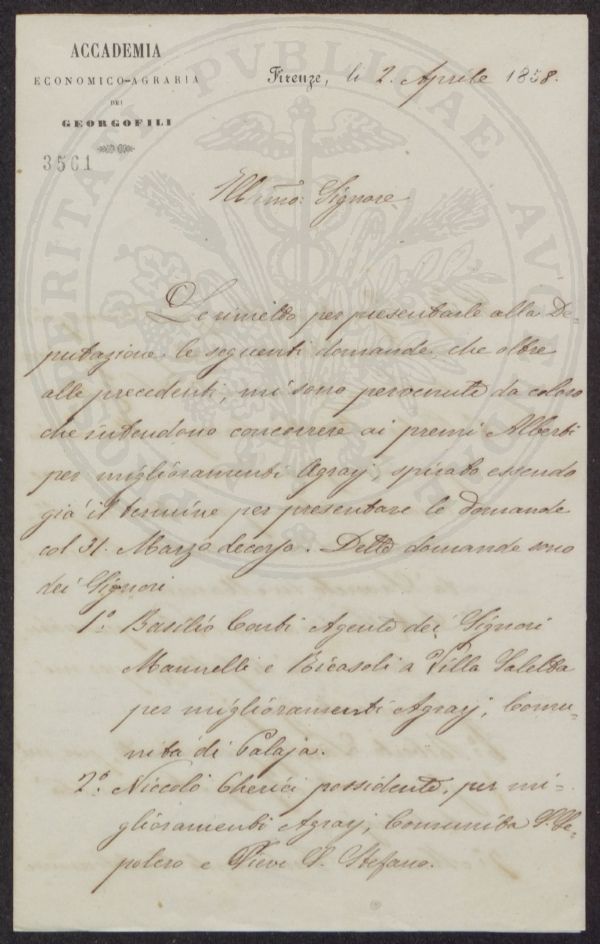 ACCADEMIA
ECONOMICO-AGRARIA
DEI
GEORGOFILI
3561
Firenze, li 2. Aprile 1858.
Illmo: Signore
Le rimetto per presentarle alla De-
putazione le seguenti domande, che oltre
alle precedenti, mi sono pervenute da coloro
che intendono concorrere ai premj Alberti
per miglioramenti Agrarj, spirato essendo
già il termine per presentare le domande
col 31. Marzo decorso. Dette domande sono
dei Signori
1º Basilio Corbi Agente dei Signori
Mannelli e Ricasoli a Villa Saletta
per miglioramenti Agrarj, Comu-
nità di Palaja.
2º Niccolò Cherici possidente, per mi-
glioramenti Agrarj, Comunità S. Se-
polcro e Pieve S. Stefano.
PROSPERITATI PUBLICAE AUGENDAE